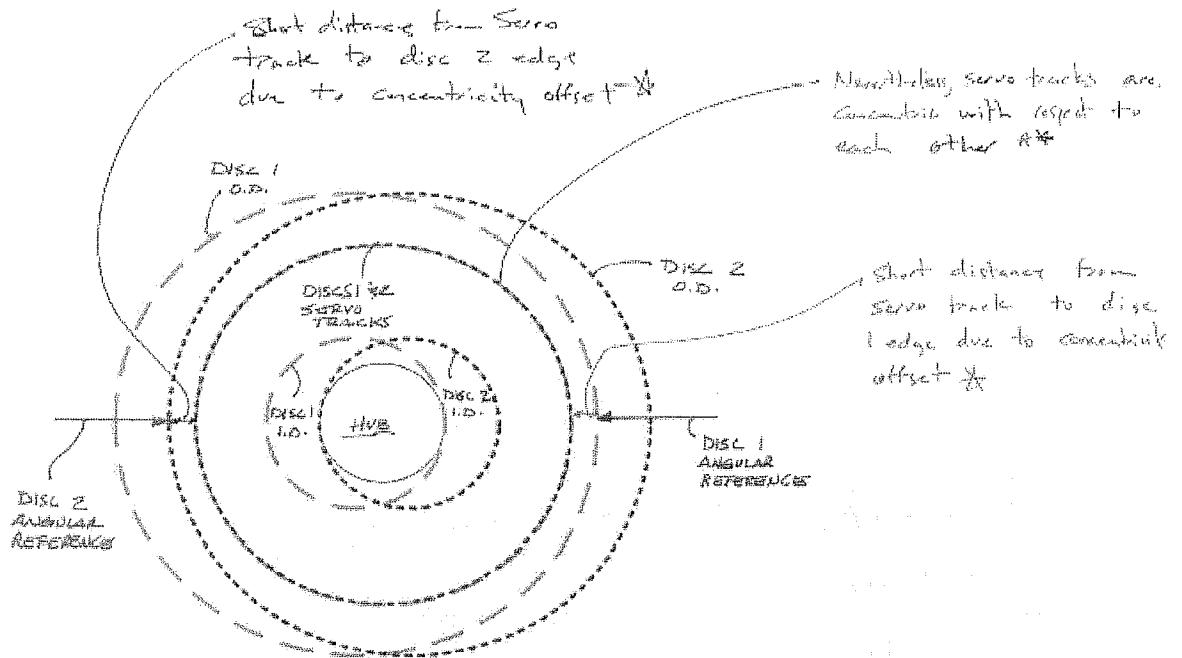 Short distance from Servo
track to disc 2 edge
due to concentricity offset
Nonetheless, servo tracks are
concentric with respect to
each other
DISC 1
O.D.
DISC 2
O.D.
DISCS 1 & 2
SERVO
TRACKS
Short distance from
servo track to disc
1 edge due to
offset
DISC 1
I.D.
HUB
DISC 2
I.D.
DISC 1
ANGULAR
REFERENCES
DISC 2
ANGULAR
REFERENCE